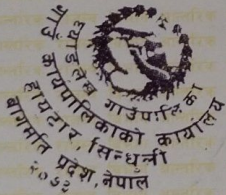 घ्याङलेख गाउँपालिका
गाउँ कार्यपालिकाको कार्यालय
हायटार, सिन्धुली
बागमति प्रदेश, नेपाल
२०७३